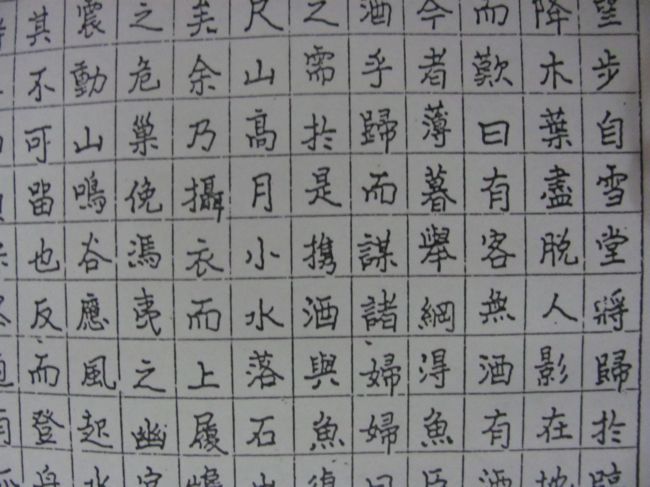 望步自雪堂將歸於臨
降木葉盡脫人影在地
而歎曰有客無酒有酒
今者薄暮舉網得魚巨
酒乎歸而謀諸婦婦曰
之需於是携酒與魚復
尺山高月小水落石出
美余乃攝衣而上履巉
之危巢俛馮夷之幽宮
震動山鳴谷應風起水
其不可留也反而登舟